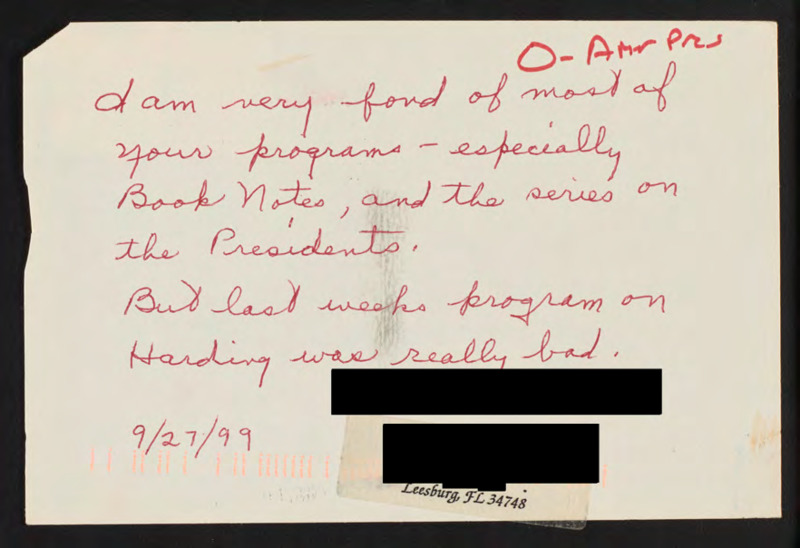 O- Amr Prs
I am very fond of most of
your programs - especially
Book Notes, and the series on
the Presidents.
But last weeks program on
Harding was really bad.
9/27/99
Leesburg, FL 34748